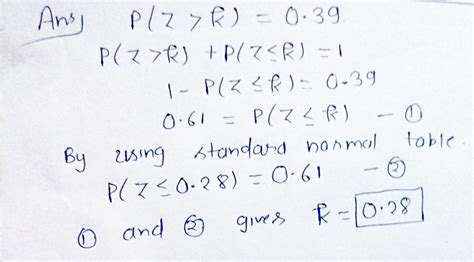 Ans) P(Z > k) = 0.39
P(Z > k) + P(Z ≤ k) = 1
1 - P(Z ≤ k) = 0.39
0.61 = P(Z ≤ k) — ①
By using standard normal table.
P(Z ≤ 0.28) = 0.61 — ②
① and ② gives k = 0.28